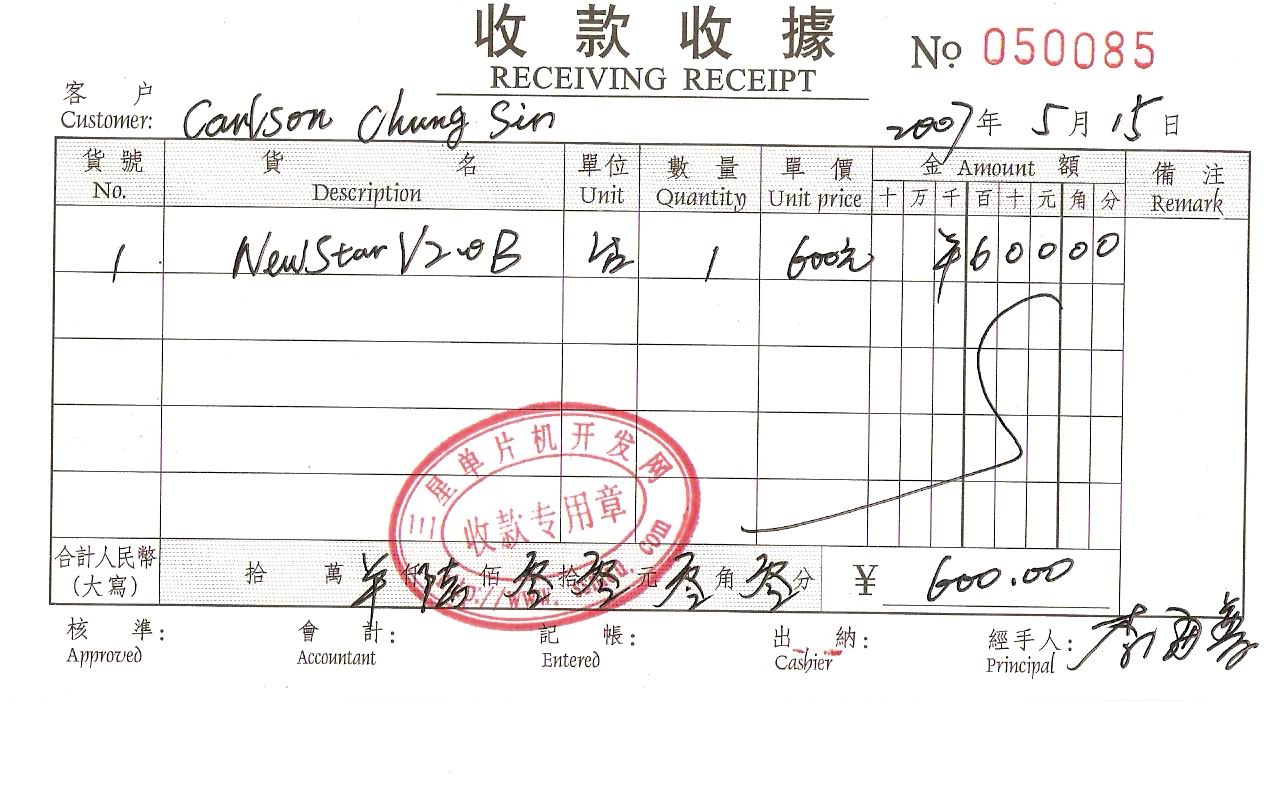 收款收據
RECEIVING RECEIPT
№ 050085
客户
Customer: Carlson Chung Sin
2007年 5月 15日
貨號 貨名 單位 數量 單價 金 Amount 額 備注
No. Description Unit Quantity Unit price 十 万 千 百 十 元 角 分 Remark
1 NewStar V2.0B 1 600元 ¥ 6 0 0 0 0
三星单片机开发网
收款专用章
合計人民幣 拾 萬 仟 陆 佰 零 拾 零 元 零 角 零 分 ¥ 600.00
(大寫)
核準: 會計: 記帳: 出納: 經手人: 李
Approved Accountant Entered Cashier Principal